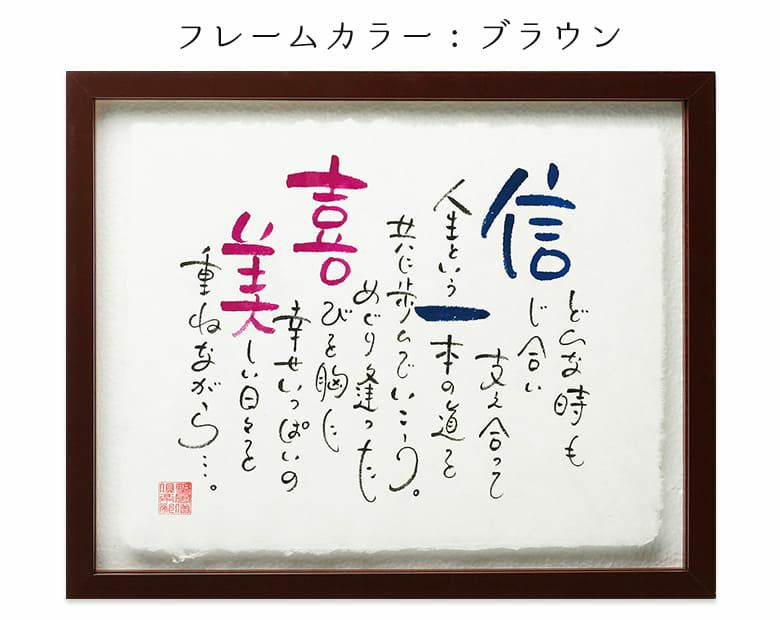 フレームカラー：ブラウン
どんな時も
信じ合い
支え合って
人生という一本の道を
共に歩んでいこう。
めぐり逢った
喜びを胸に
幸せいっぱいの
美しい日々を
重ねながら…。